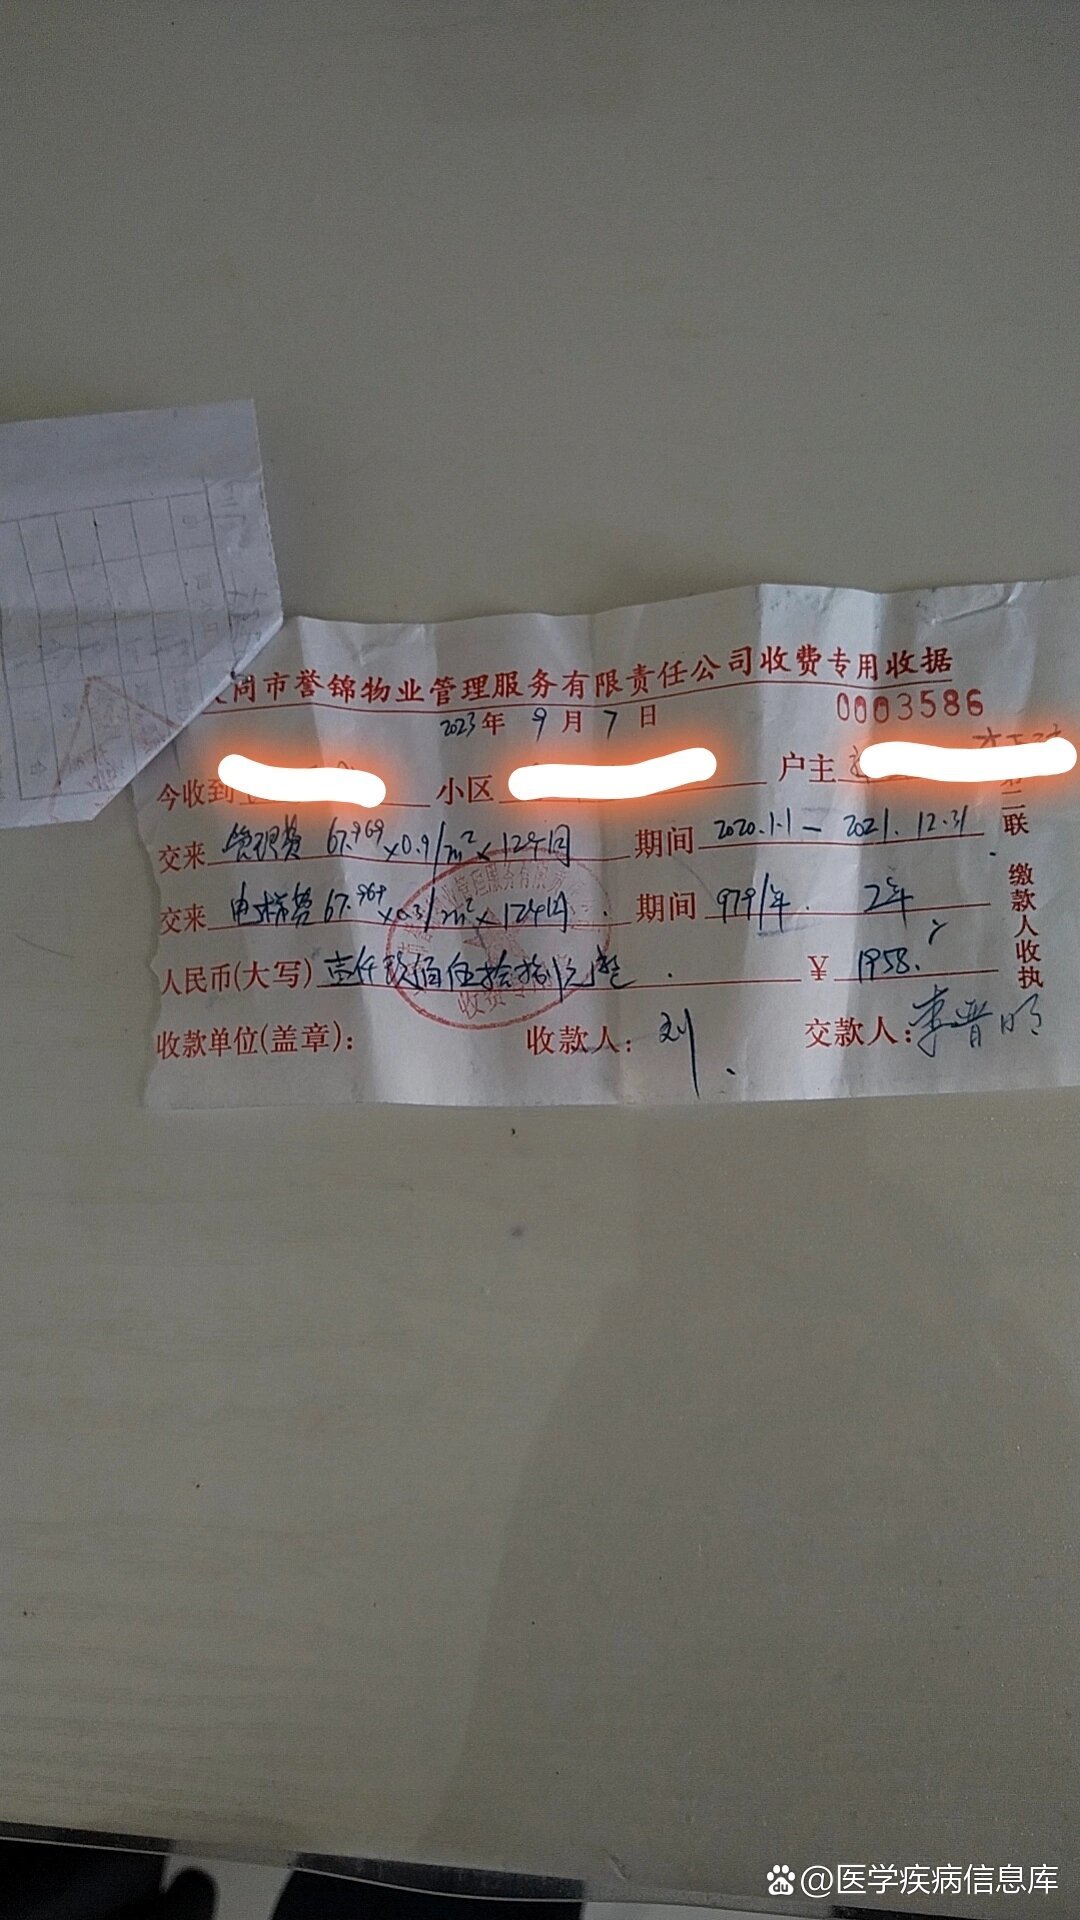 同市誉锦物业管理服务有限责任公司收费专用收据
2023年 9月 7日 0003586
今收到 小区 户主
交来 管理费 67.969×0.9/m²×12个月 期间 2020.1.1－2021.12.31
交来 电梯费 67.969×0.3/m²×12个月 期间 979/年. 2年
人民币(大写) 壹仟玖佰伍拾捌元整 ¥ 1958.
收款单位(盖章)： 收款人：刘 交款人：李晋明
第二联 缴款人收执
收费专用
@医学疾病信息库